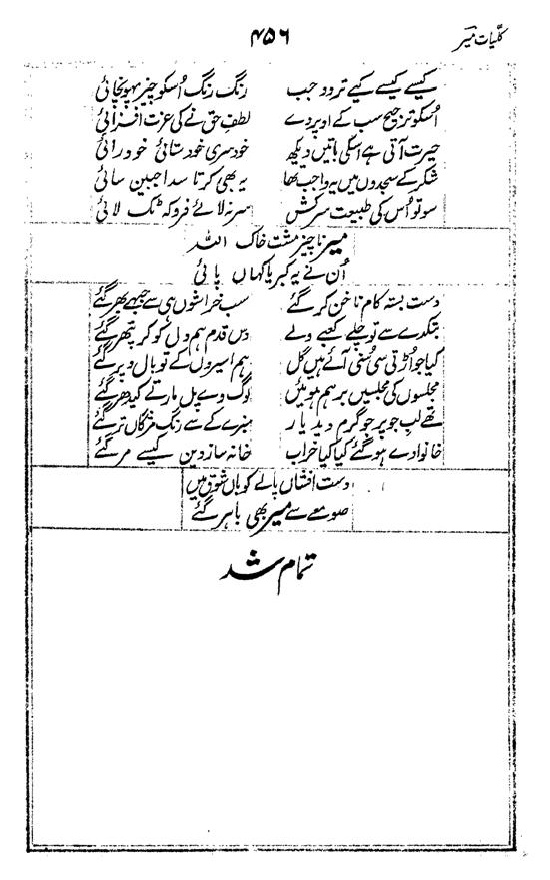 کلیات میر
۴۵۶
کیسے کیسے کیے تردد جب رنگ رنگ اُسکو چیز پہونچائی
اُسکو ترجیح سب کے اوپر دے لطفِ حق نے کی عزت افزائی
حیرت آتی ہے اسکی باتیں دیکھ خودسری خودستائی خودرائی
شکر کے سجدوں میں یہ واجب تھا یہ بھی کرتا سدا جبیں سائی
سو تو اُس کی طبیعت سرکش سر نہ لائے فرو کہ ٹک لائی
میر ناچیز مشت خاک اللہ
اُن نے یہ کبریا کہاں پائی
دست بستہ کام ناخن کر گئے سب خراشوں ہی سے جبہے بھر گئے
بتکدے سے تو چلے کعبے ولے دس قدم ہم دل کو کر پتھر گئے
کیا جو اُڑتی سی سُنی آئے ہیں گل ہم اسیروں کے تو بال و پر گئے
مجلسوں کی مجلسیں برہم ہوئیں لوگ وے پل مارتے کیدھر گئے
تھے لبِ جو پر جو گرم دید یار سبزے کے سے رنگ مژگاں تر گئے
خانوادے ہو گئے کیا کیا خراب خانہ ساز دین کیسے مر گئے
دست افشاں پائے کوباں شوق میں
صومعے سے میر بھی باہر گئے
تمام شد